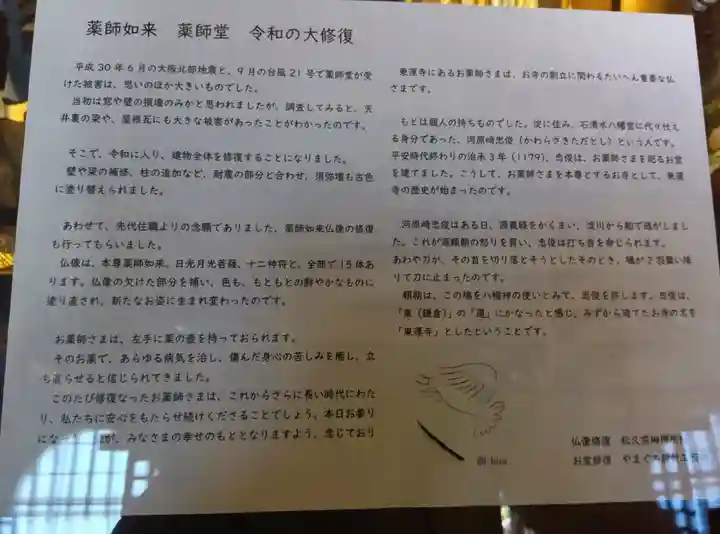 薬師如来 薬師堂 令和の大修復
平成30年6月の大阪北部地震と、9月の台風21号で薬師堂が受
けた被害は、思いのほか大きいものでした。
当初は窓や壁の損壊のみかと思われましたが、調査してみると、天
井裏の梁や、屋根瓦にも大きな被害があったことがわかったのです。
そこで、令和に入り、建物全体を修復することになりました。
壁や梁の補修、柱の追加など、耐震の部分と合わせ、須弥壇も古色
に塗り替えられました。
あわせて、先代住職よりの念願でありました、薬師如来仏像の修復
も行ってもらいました。
仏像は、本尊薬師如来、日光月光菩薩、十二神将と、全部で15体あ
ります。仏像の欠けた部分を補い、色も、もともとの鮮やかなものに
塗り直され、新たなお姿に生まれ変わったのです。
お薬師さまは、左手に薬の壺を持っておられます。
そのお薬で、あらゆる病気を治し、傷んだ身心の苦しみを癒し、立
ち直らせると信じられてきました。
このたび修復なったお薬師さまは、これからさらに長い時代にわた
り、私たちに安心をもたらせ続けくださることでしょう。本日お参り
になっ が、みなさまの幸せのもととなりますよう、念じており
東運寺にあるお薬師さまは、お寺の創立に関わるたいへん重要な仏
さまです。
もとは個人の持ちものでした。淀に住み、石清水八幡宮に代々仕え
る身分であった、河原﨑忠俊（かわらさきただとし）という人です。
平安時代終わりの治承3年（1179）、忠俊は、お薬師さまを祀るお堂
を建てました。こうして、お薬師さまを本尊とするお寺として、東運
寺の歴史が始まったのです。
河原﨑忠俊はある日、源義経をかくまい、淀川から船で逃がしまし
た。これが源頼朝の怒りを買い、忠俊は打ち首を命じられます。
あわや刀が、その首を切り落とそうとしたそのとき、鳩が2羽舞い降
りて刀に止まったのです。
頼朝は、この鳩を八幡神の使いとみて、忠俊を許します。忠俊は、
「東（鎌倉）」の「運」にかなったと感じ、みずから建てたお寺の名を
「東運寺」としたということです。
仏像修復 松久宗琳佛所
お堂修復 やまぐち